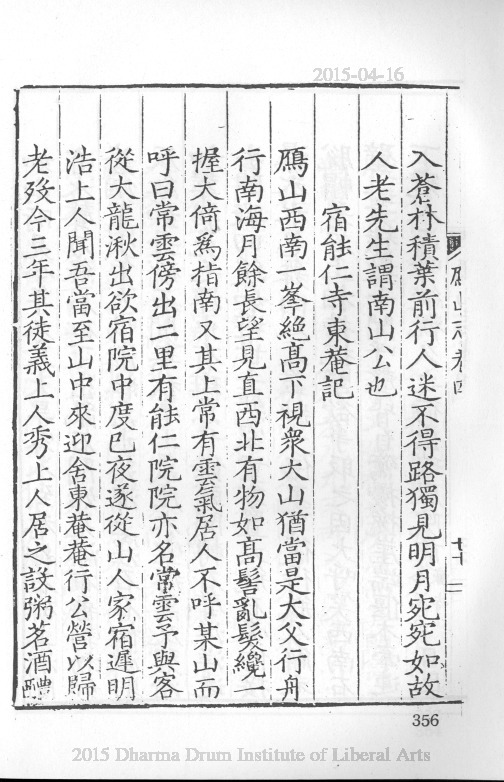 2015-04-16
入蒼林積葉前行人迷不得路獨見明月宛宛如故
人老先生謂南山公也
宿能仁寺東菴記
鴈山西南一峯絶髙下視衆大山猶當是大父行舟
行南海月餘長望見直西北有物如髙髻亂髮纔一
握大倚爲指南又其上常有雲氣居人不呼某山而
呼曰常雲傍出二里有能仁院院亦名常雲予與客
從大龍湫出欲宿院中度巳夜遂從山人家宿遲明
浩上人聞吾當至山中來迎舍東菴菴行公營以歸
老殁今三年其徒義上人秀上人居之設粥茗酒醴
356
2015 Dharma Drum Institute of Liberal Arts